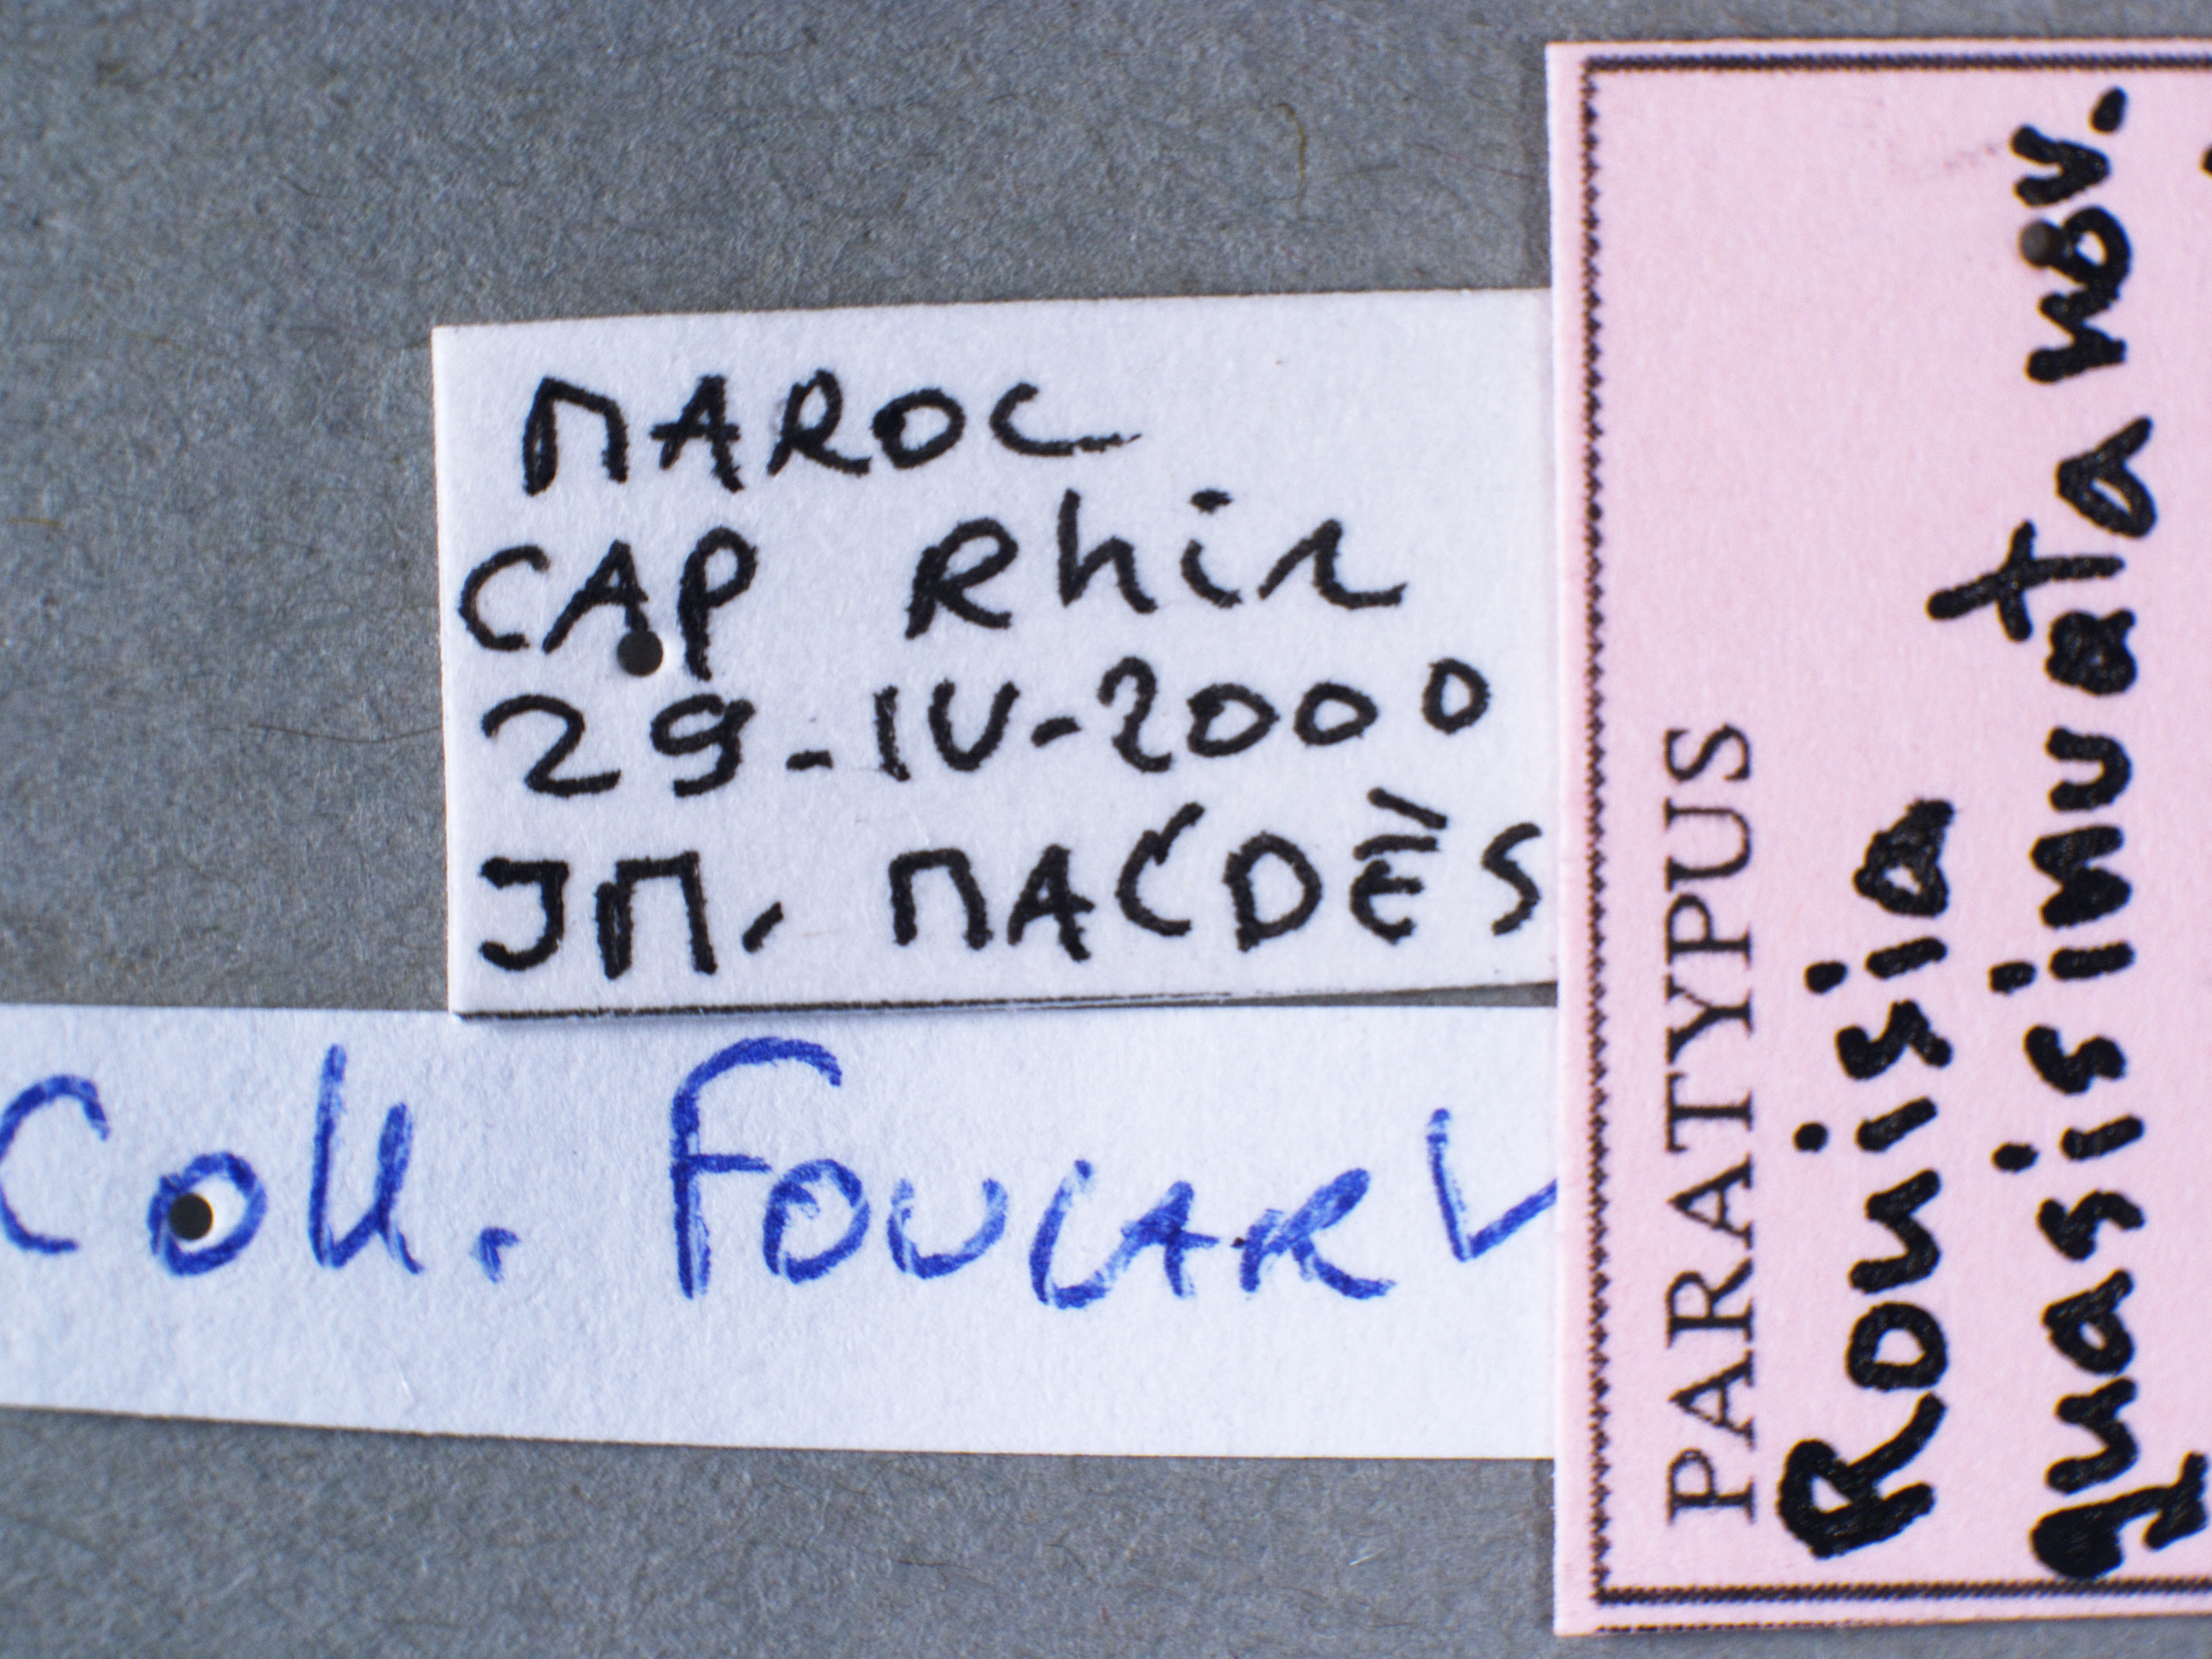 MAROC
CAP Rhir
29-IV-2000
JM. MACDÈS
Coll.
PARATYPUS
Rouisia
quasisinuata nov.